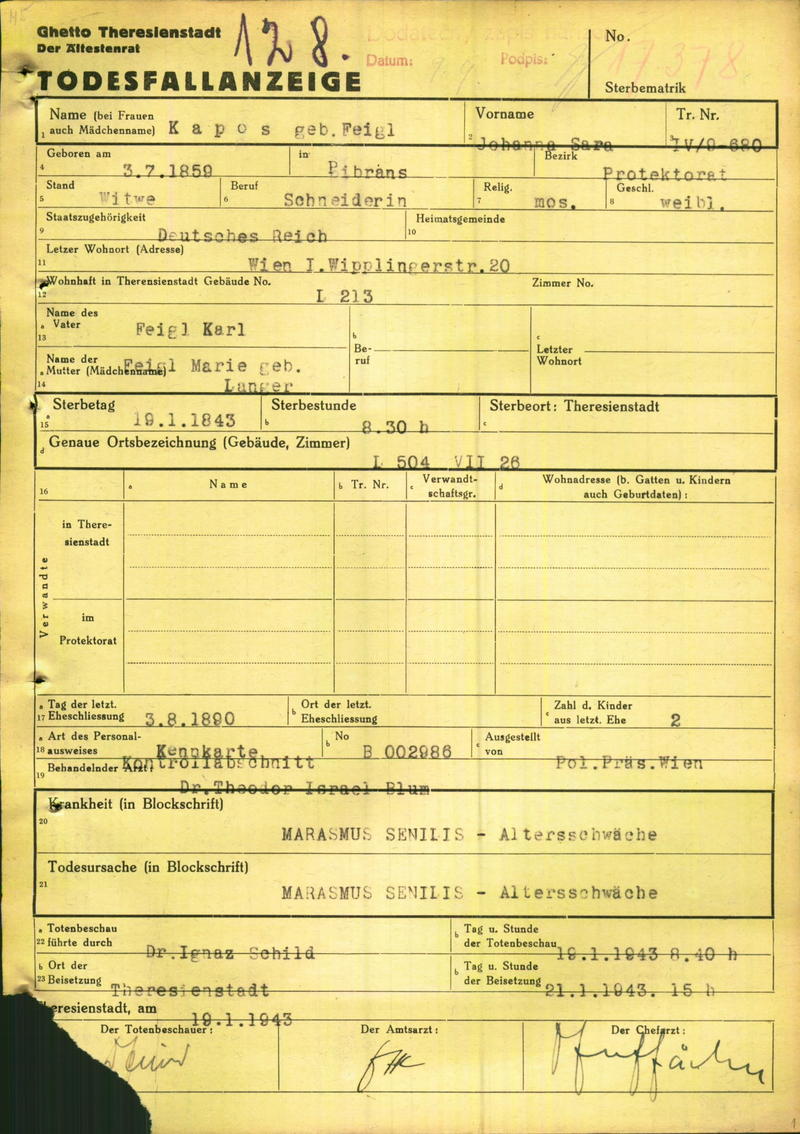 Ghetto Theresienstadt
Der Ältestenrat
128.
Datum:
Podpis:
No.
17378
TODESFALLANZEIGE
Sterbematrik
Name (bei Frauen
1 auch Mädchenname) Kapos geb.Feigl
Vorname
2 Johanna Sara
Tr. Nr.
3 IV/9-680
Geboren am
4 3.7.1859
in Pibrans
Bezirk Protektorat
Stand
5 Witwe
Beruf
6 Schneiderin
Relig.
7 mos.
Geschl.
8 weibl.
Staatszugehörigkeit
9 Deutsches Reich
Heimatsgemeinde
10
Letzer Wohnort (Adresse)
11 Wien I.Wipplingerstr.20
Wohnhaft in Therensienstadt Gebäude No.
12 L 213
Zimmer No.
Name des
a Vater Feigl Karl
13
Name der
a Mutter (Mädchenname) Feigl Marie geb.
14 Langer
b
Be-
ruf
c
Letzter
Wohnort
Sterbetag
15 a 19.1.1843
Sterbestunde
b 8.30 h
Sterbeort: Theresienstadt
c
d Genaue Ortsbezeichnung (Gebäude, Zimmer)
L 504 VII 26
16
a Name
b Tr. Nr.
c Verwandt-
schaftsgr.
d Wohnadresse (b. Gatten u. Kindern
auch Geburtdaten):
Verwandte
in There-
sienstadt
im
Protektorat
a Tag der letzt.
17 Eheschliessung 3.8.1890
b Ort der letzt.
Eheschliessung
c Zahl d. Kinder
aus letzt. Ehe 2
a Art des Personal-
18 ausweises Kennkarte
b No B 002986
c Ausgestellt
von Pol.Präs.Wien
19 Behandelnder Arzt: Kontrollabschnitt
Dr.Theodor Israel Blum
Krankheit (in Blockschrift)
20
MARASMUS SENILIS - Altersschwäche
Todesursache (in Blockschrift)
21
MARASMUS SENILIS - Altersschwäche
a Totenbeschau
22 führte durch Dr.Ignaz Schild
b Tag u. Stunde
der Totenbeschau 19.1.1943 8.40 h
b Ort der
23 Beisetzung Theresienstadt
b Tag u. Stunde
der Beisetzung 21.1.1943. 15 h
eresienstadt, am 19.1.1943
Der Totenbeschauer:
Der Amtsarzt:
Der Chefarzt:
1